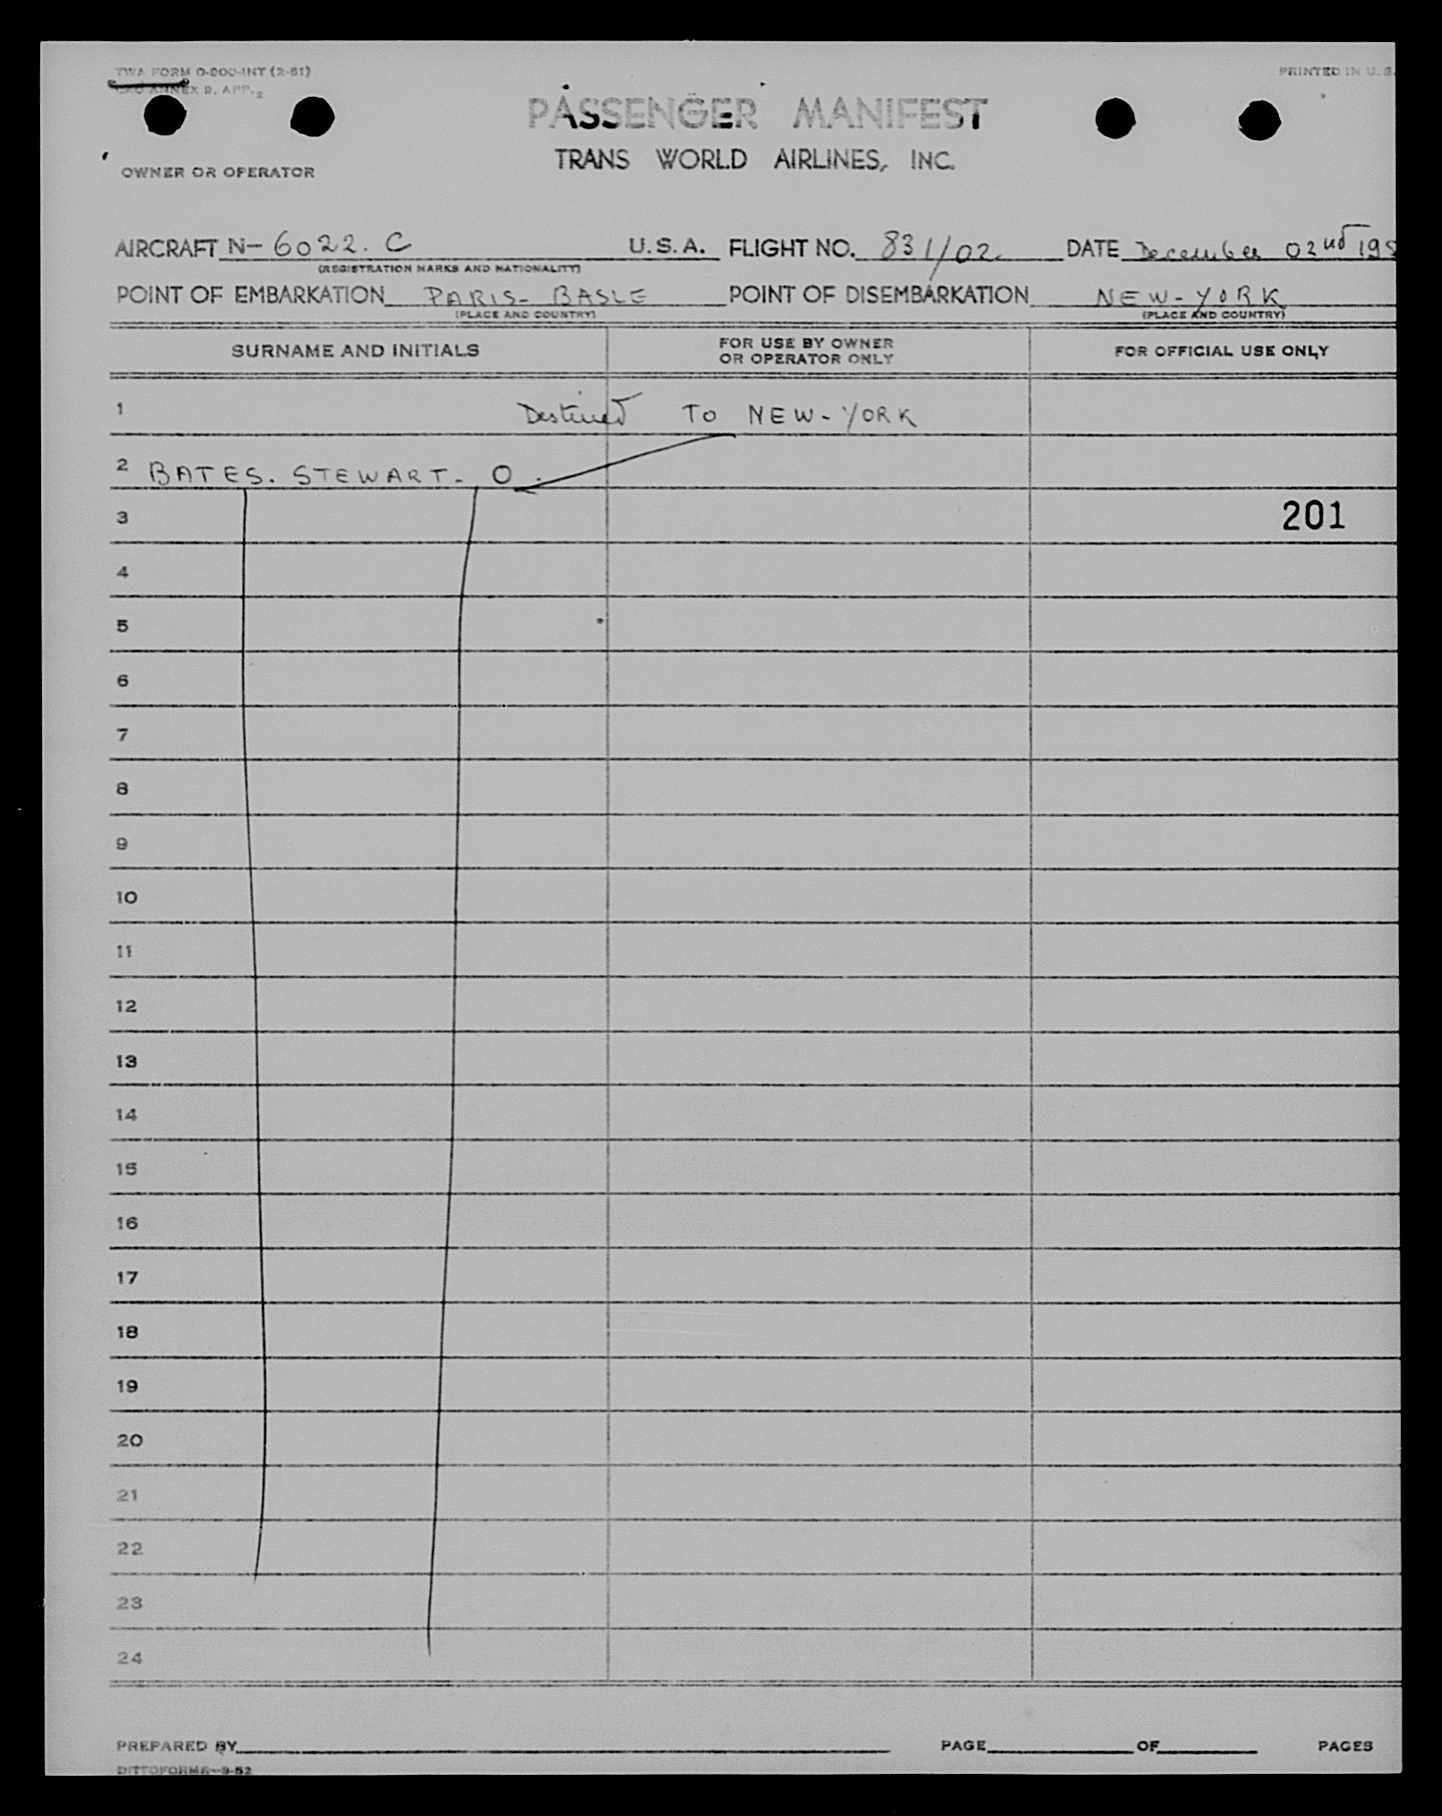 TWA FORM O-800-INT (2-51)
PRINTED IN U. S.
ANNEX 9, APP. 2
PASSENGER MANIFEST
TRANS WORLD AIRLINES, INC.
OWNER OR OPERATOR
AIRCRAFT N- 6022. C U.S.A. FLIGHT NO. 831/02. DATE December 02nd 195
(REGISTRATION MARKS AND NATIONALITY)
POINT OF EMBARKATION PARIS - BASLE POINT OF DISEMBARKATION NEW-YORK
(PLACE AND COUNTRY) (PLACE AND COUNTRY)
SURNAME AND INITIALS FOR USE BY OWNER OR OPERATOR ONLY FOR OFFICIAL USE ONLY
1 Destined TO NEW-YORK
2 BATES. STEWART. O.
3 201
4
5
6
7
8
9
10
11
12
13
14
15
16
17
18
19
20
21
22
23
24
PREPARED BY PAGE OF PAGES
DITTOFORMS-9-52